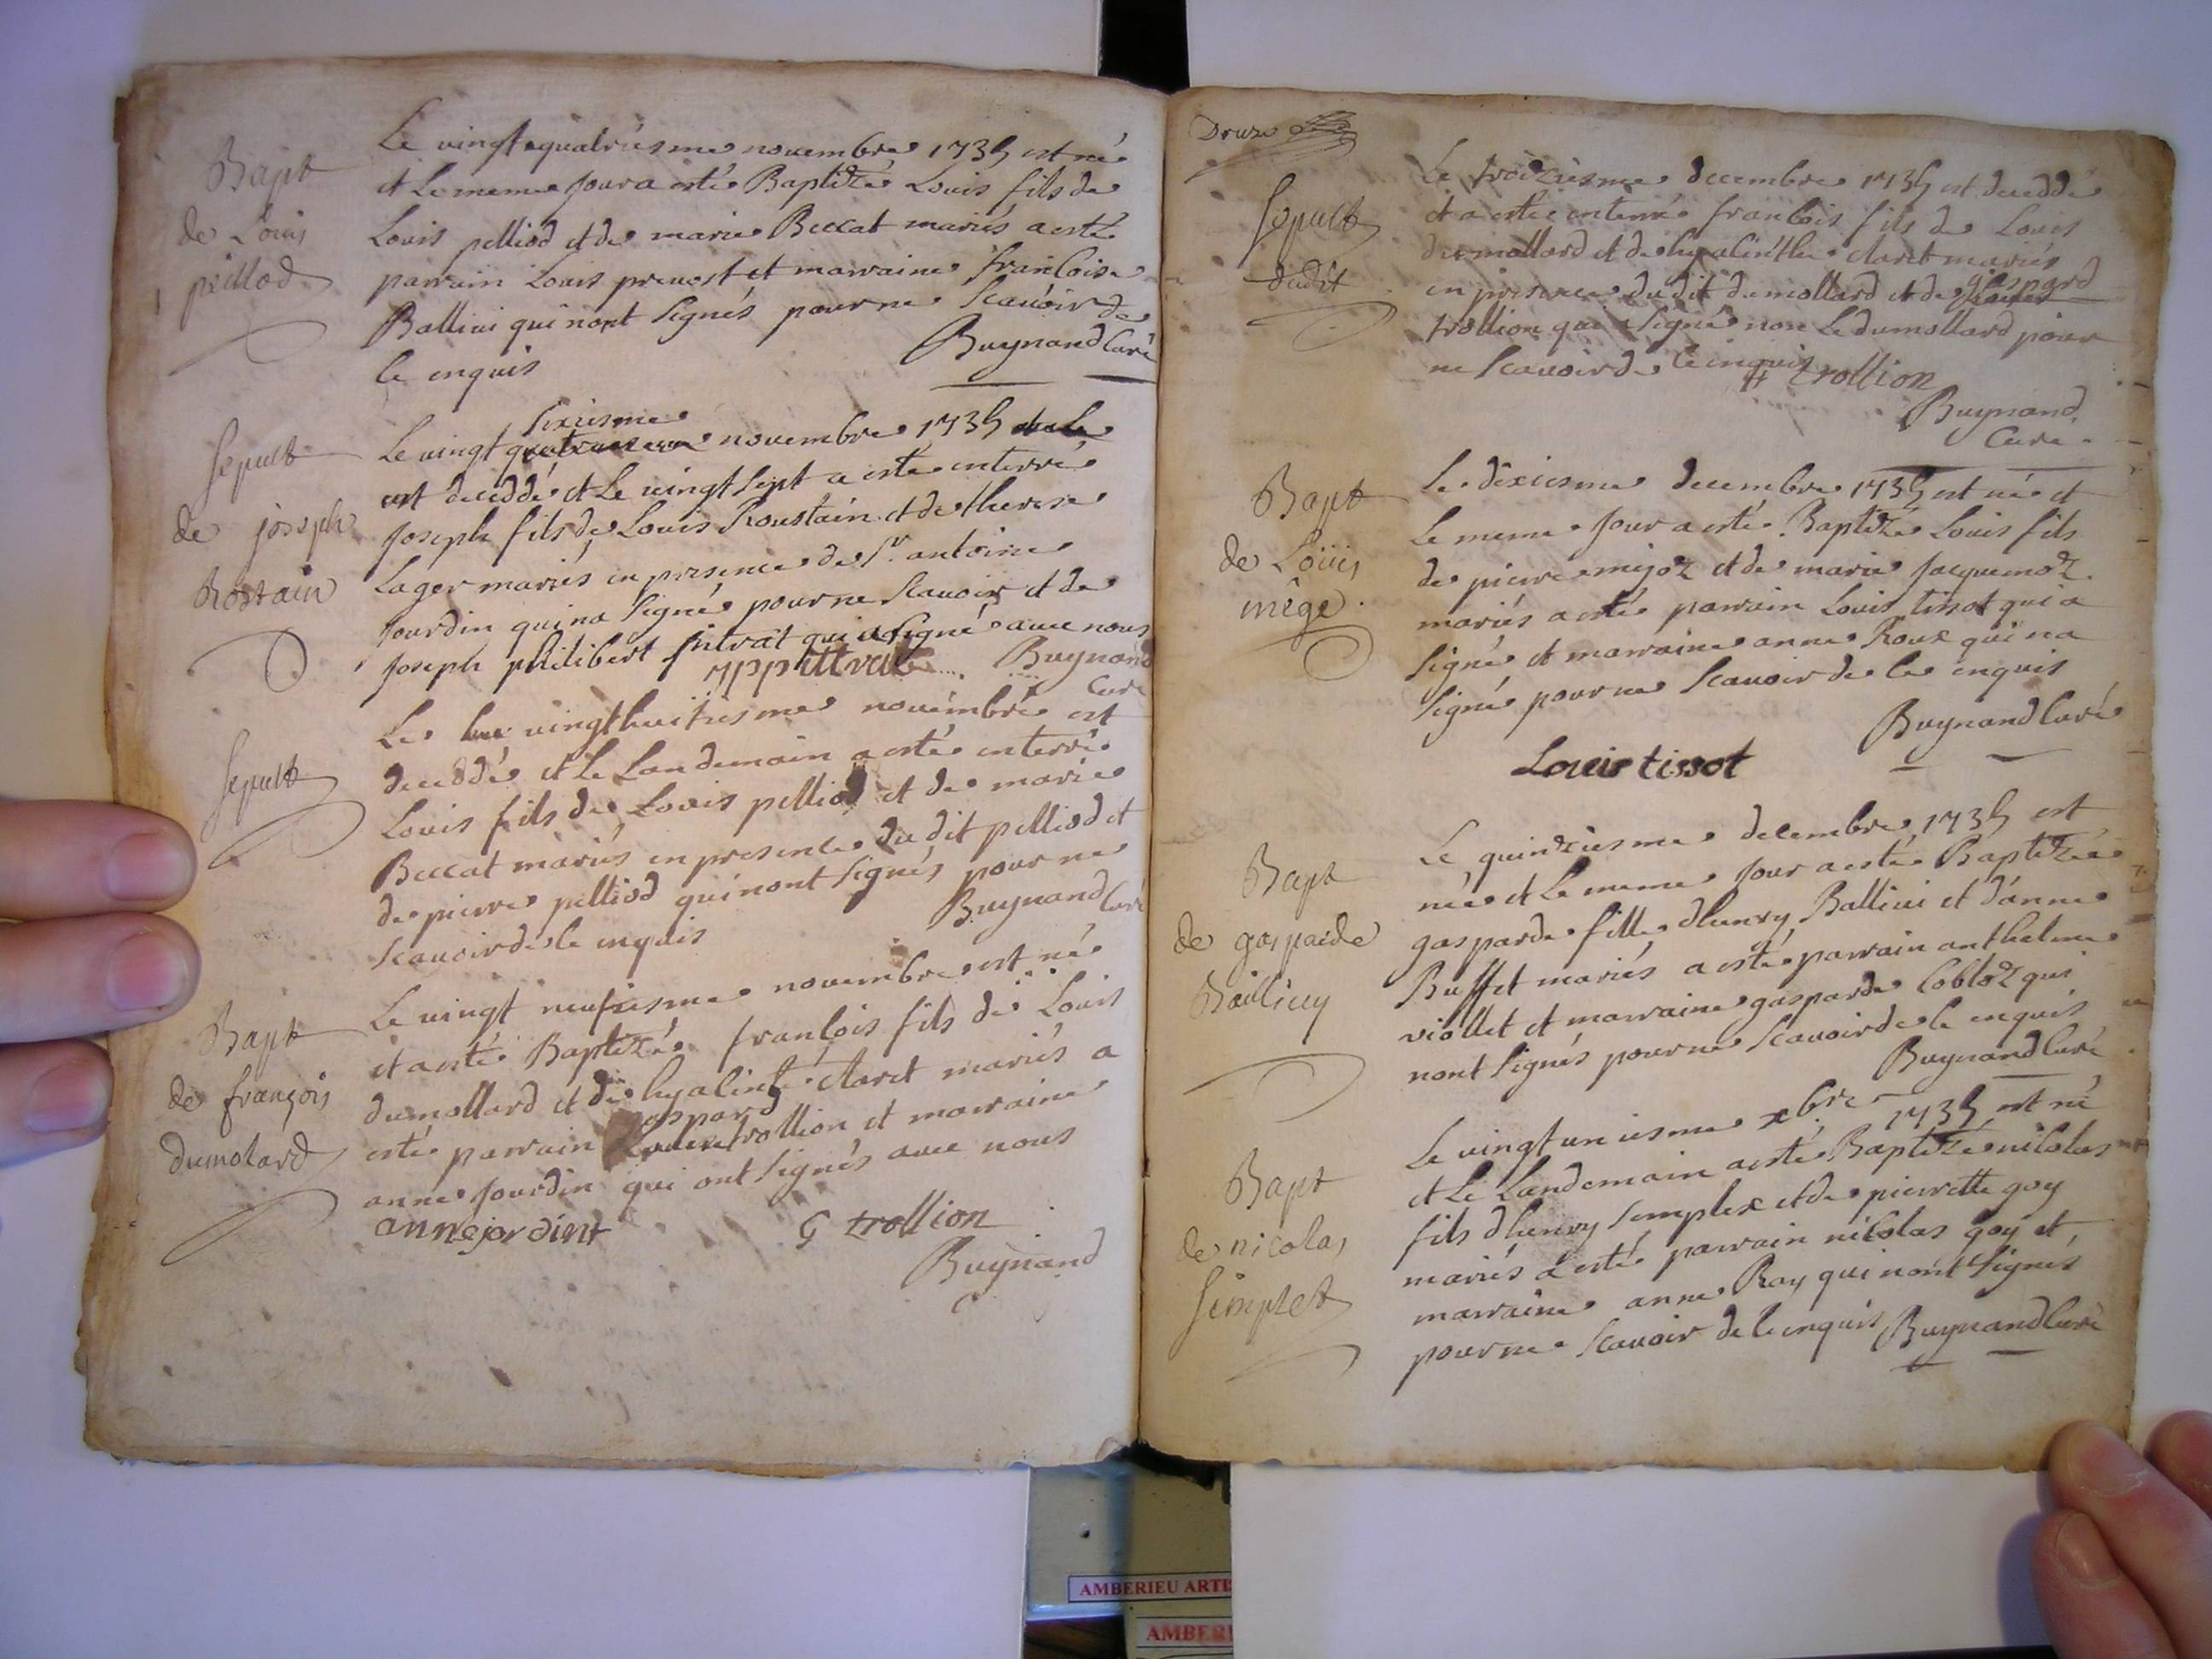 Bapt
de Louis
pelliod
Le vingtquatriesme novembre 1735 est né
et le meme jour a esté Baptizé Louis fils de
Louis pelliod et de marie Beccat mariés a esté
parrain Louis prevost et marraine francoise
Ballivi qui nont signés pour ne scavoir de
ce enquis
Buynand Curé
Sepult
de joseph
Rostain
sixiesme
Le vingt novembre 1735
est deceddé et le vingt sept a esté enterré
joseph fils de Louis Roustain et de therese
Lager mariés en presence de Sr. antoine
jourdin qui na signé pour ne scavoir et de
joseph philibert jntrat qui a signé avec nous
Buynand
Curé
Sepult
Le vingthuitiesme novembre est
deceddé et le landemain a esté enterré
Louis fils de Louis pelliod et de marie
Beccat mariés en presence du dit pelliod et
de pierre pelliod qui nont signés pour ne
scavoir de ce enquis
Buynand Curé
Bapt
de françois
dumolard
Le vingt neufiesme novembre est né
et a esté Baptizé francois fils de Louis
dumollard et de hyalinte claret mariés a
gaspard
esté parrain trollion et marraine
anne jourdin qui ont signés avec nous
anne jordint
G trollion
Buynand
C
Druze
Sepult
dudit
Le troiziesme decembre 1735 est deceddé
et a estée enterré francois fils de Louis
dumollard et de hyalinthe claret mariés
gaspard
en presence dudit dumollard et de
trollion qui a signé non le dumollard pour
ne scavoir de ce enquis
trollion
Buynand
Curé
Bapt
de Loüis
mége
Le dixiesme decembre 1735 est né et
le meme jour a esté Baptizé Louis fils
de pierre mejoz et de marie jacquemoz
mariés a esté parrain Louis tissot qui a
signé et marraine anne Roux qui na
signé pour ne scavoir de ce enquis
Buynand Curé
Louis tissot
Bapt
de gasparde
Baillivy
Le quinziesme decembre 1735 est
née et le meme jour a esté Baptizée
gasparde fille dhenry Ballivi et d'anne
Buffet mariés a esté parrain anthelme
viollet et marraine gasparde Cobloz qui
nont signés pour ne scavoir de ce enquis
Buynand Curé
Bapt
de nicolas
Simplet
Le vingt un iesme xbre 1735 est né
et le landemain a esté Baptizé nicolas
fils dhenry Semplex et de pierrette goy
mariés a esté parrain nicolas goy et
marraine anne Ray qui nont signés
pour ne scavoir de ce enquis
Buynand Curé
AMBERIEU ARTI
AMBERI